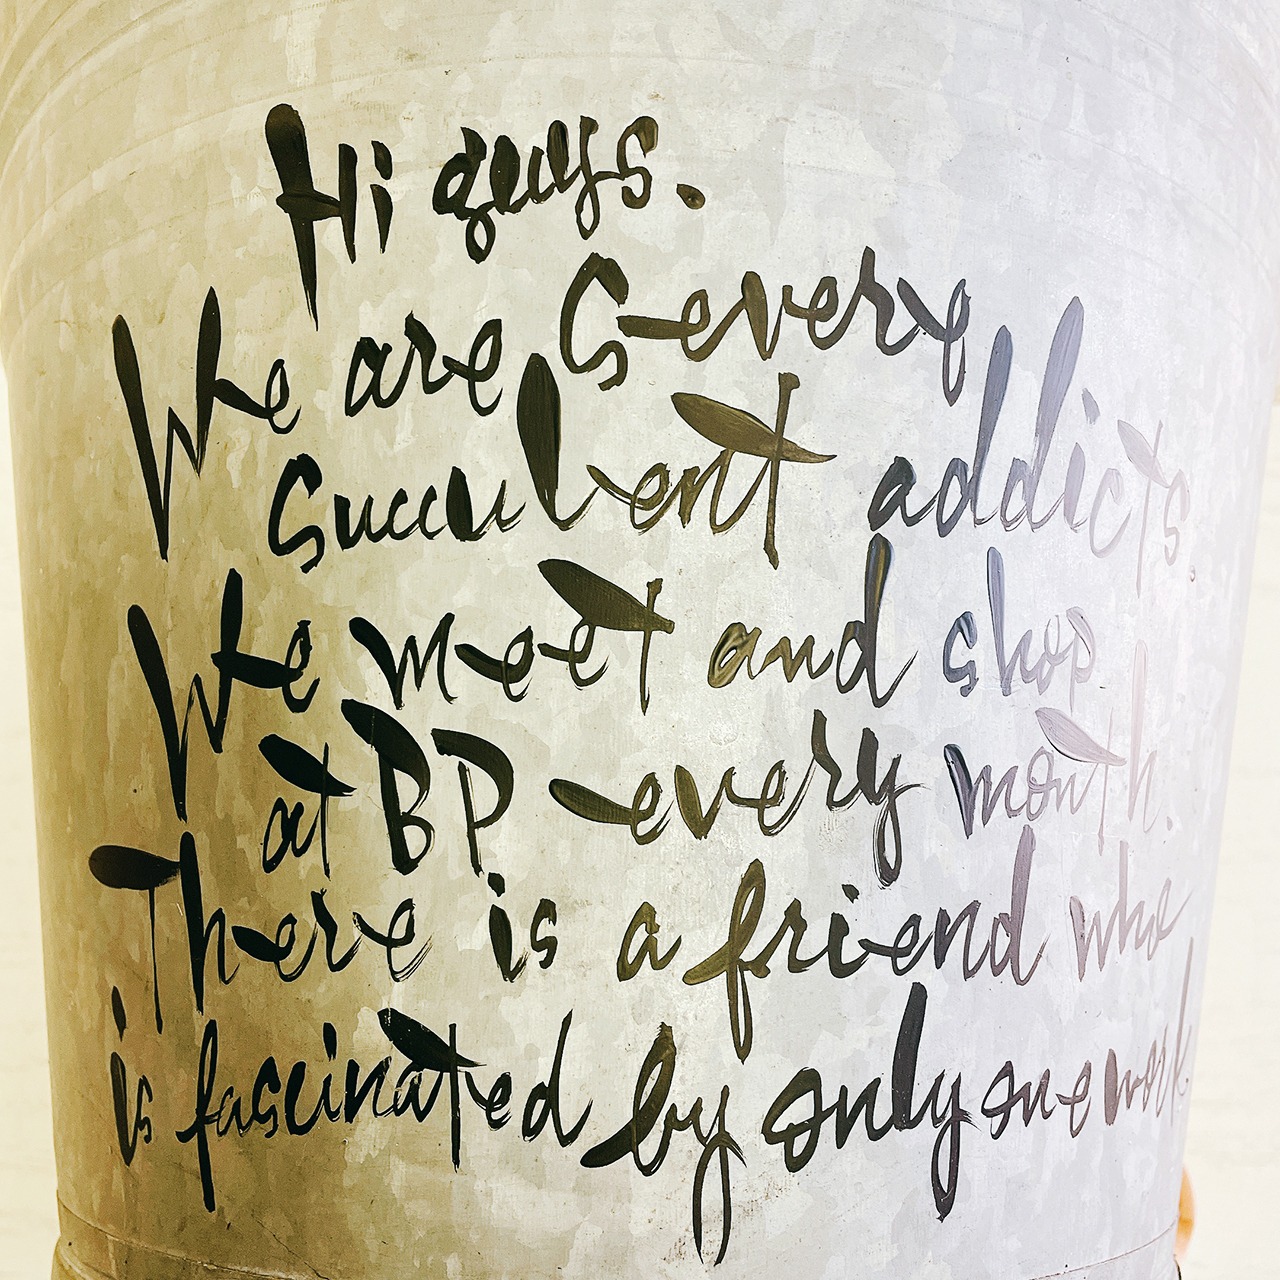 Hi guys.
We are Severy
Succulent addicts.
We meet and shop
at BP every month.
There is a friend who
is fascinated by only one work